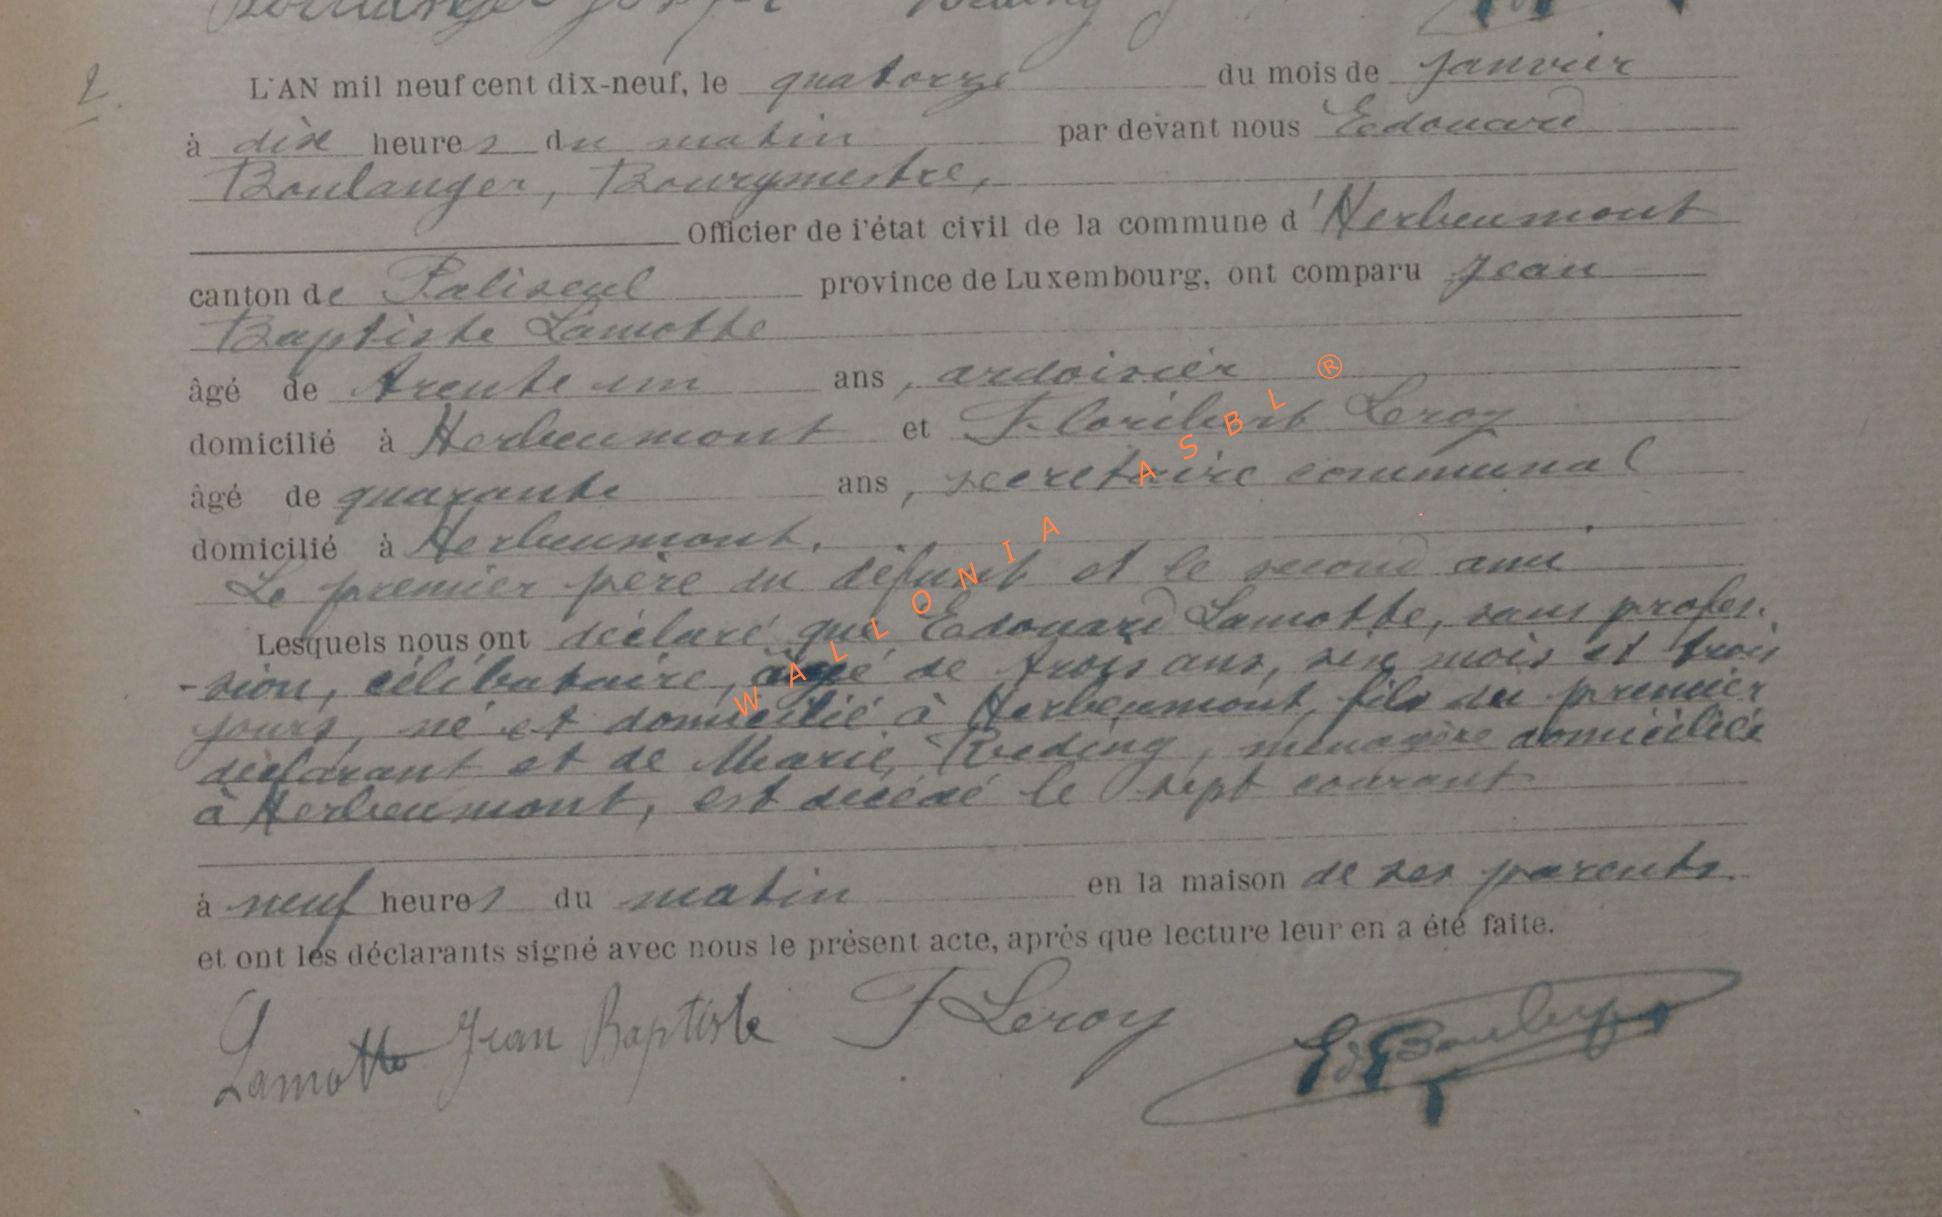 2.
L'AN mil neuf cent dix-neuf, le quatorze du mois de janvier
à dix heures du matin par devant nous Edouard
Boulanger, Bourgmestre,
Officier de l'état civil de la commune d'Herbeumont
canton de Paliseul province de Luxembourg, ont comparu Jean
Baptiste Lamotte
âgé de trente un ans, ardoisier
domicilié à Herbeumont et Floribert Leroy
âgé de quarante ans, secretaire communal
domicilié à Herbeumont.
Le premier père du défunt et le second ami
Lesquels nous ont déclaré que Edouard Lamotte, sans profes-
-sion, célibataire, âgé de trois ans, six mois et trois
jours, né et domicilié à Herbeumont, fils du premier
déclarant et de Marie Reding, ménagère domiciliée
à Herbeumont, est décédé le sept courant
à neuf heures du matin en la maison de ses parents.
et ont les déclarants signé avec nous le présent acte, après que lecture leur en a été faite.
Lamotte Jean Baptiste F Leroy Ed Boulanger
WALLONIA ASBL ®